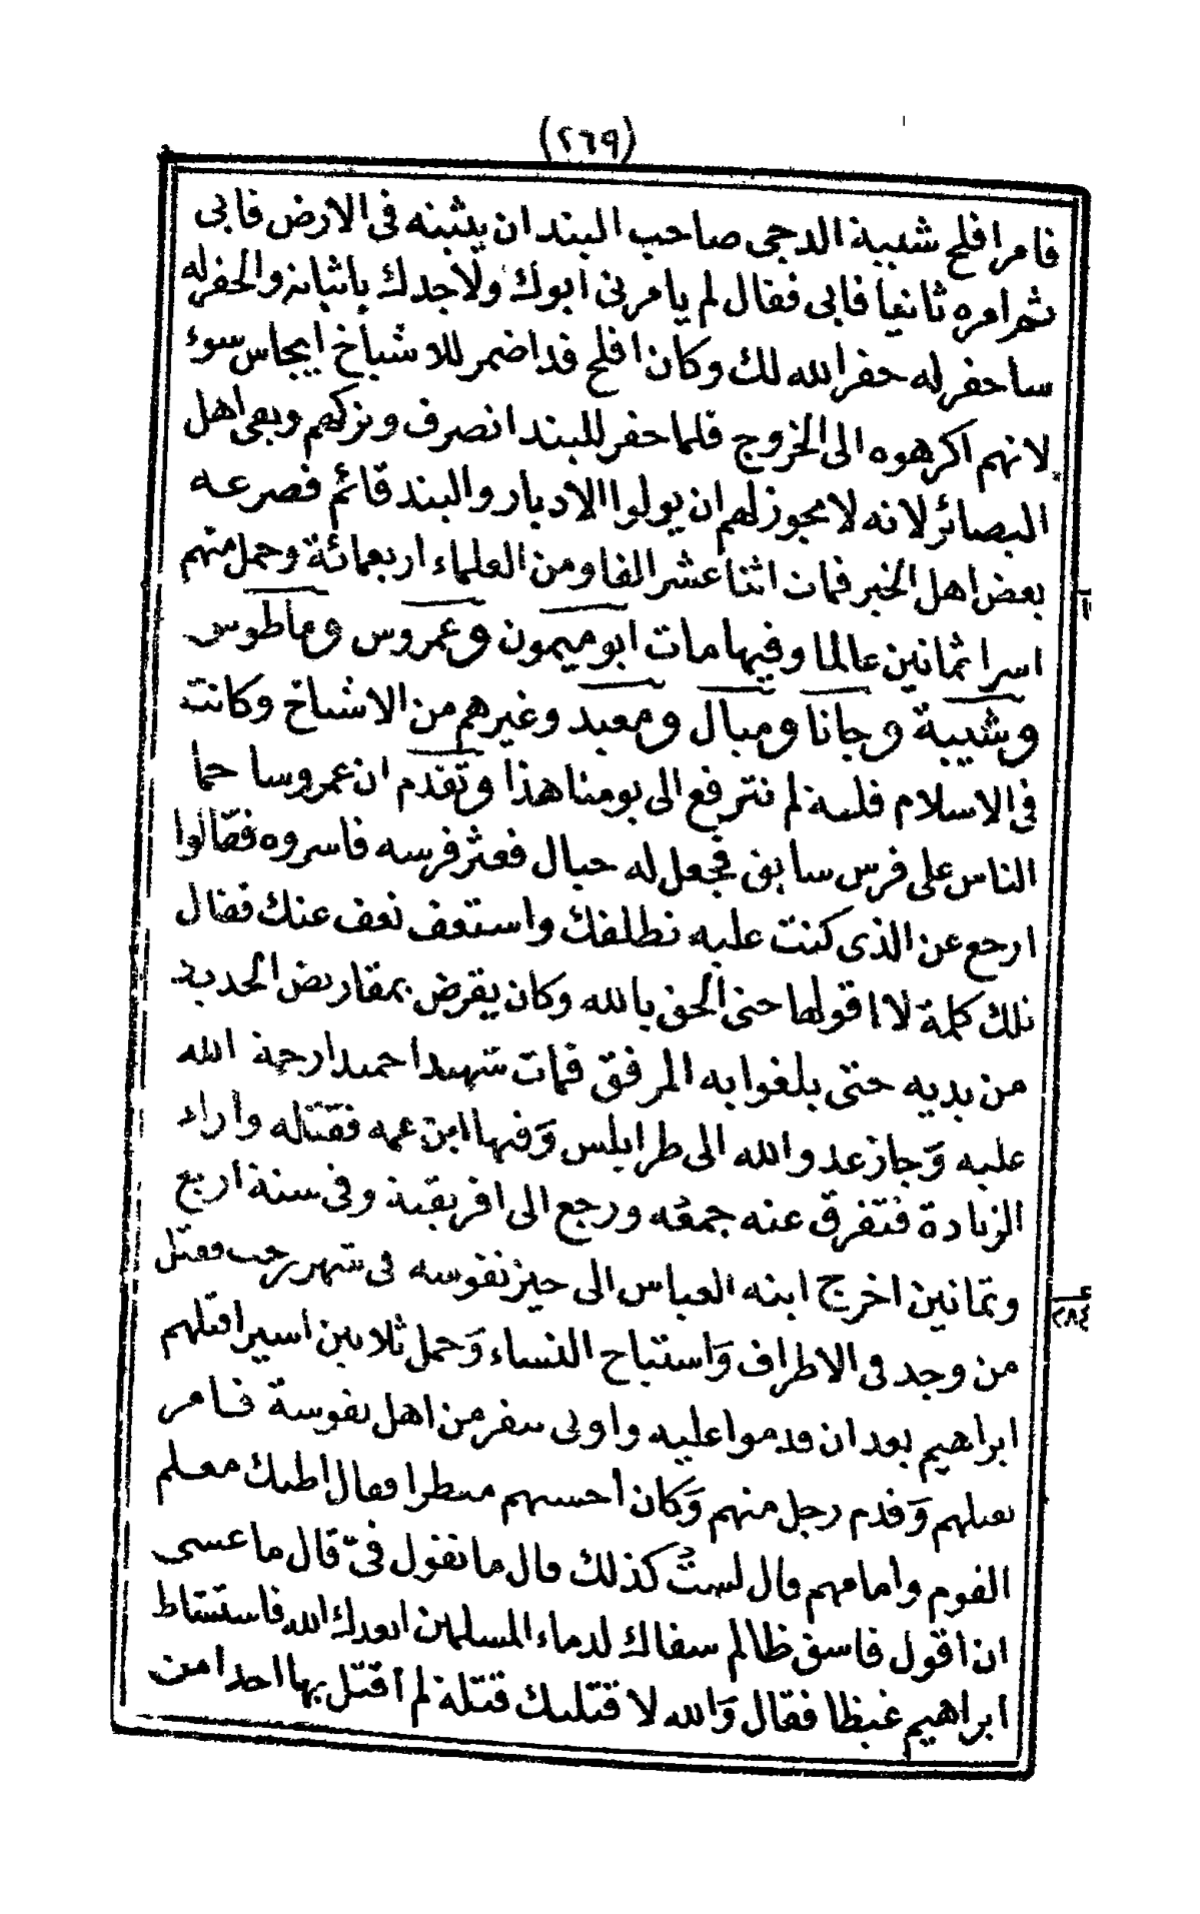 (٢٦٩)
فامر افلح شيبة الدجى صاحب البند ان يثبته فى الارض فابى
ثم امره ثانيا فابى فقال لم يامرنى ابوك ولا جدك باثباته والحفر له
ساحفر له حفر الله لك وكان افلح قد اضمر للاشياخ ايجاس سوء
لانهم اكرهوه الى الخروج فلما حفر للبند انصرف وتركهم وبقى اهل
البصائر لانه لا يجوز لهم ان يولوا الادبار والبند قائم فصرعه
بعض اهل الخير فمات اثنا عشر الفا ومن العلماء اربعمائة وحمل منهم
اسرا ثمانين عالما وفيها مات ابو ميمون وعمروس وماطوس
وشيبة وجانا وميال ومعبد وغيرهم من الاشياخ وكانت
فى الاسلام فلسة لم تترقع الى يومنا هذا وتقدم ان عمروسا حما
الناس على فرس سابق فجعل له حبال فعثر فرسه فاسروه فقالوا
ارجع عن الذى كنت عليه نطلقك واستعف نعف عنك فقال
تلك كلمة لا اقولها حتى الحق بالله وكان يقرض بمقاريض الحديد
من يديه حتى بلغوا به المرفق فمات شهيدا حميدا رحمة الله
عليه وجاز عدو الله الى طرابلس وفيها ابن عمه فقتله واراد
الزيادة فتفرق عنه جمعه ورجع الى افريقية وفى سنة اربع
وثمانين اخرج ابنه العباس الى حيز نفوسه فى شهر رجب فقتل
٢٨٤
من وجد فى الاطراف واستباح النساء وحمل ثلاثين اسيرا قتلهم
ابراهيم بعد ان قدموا عليه واوتى بنفر من اهل نفوسة فامر
بقتلهم وقدم رجل منهم وكان احسنهم منظرا فقال اظنك معلم
القوم وامامهم قال لست كذلك قال ما تقول فىّ قال ما عسى
ان اقول فاسق ظالم سفاك لدماء المسلمين ابعدك الله فاستشاط
ابراهيم غيظا فقال والله لا قتلنك قتلة لم اقتل بها احدا من